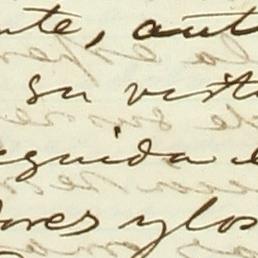 nte, aut
su vist
eguida e
ores y los